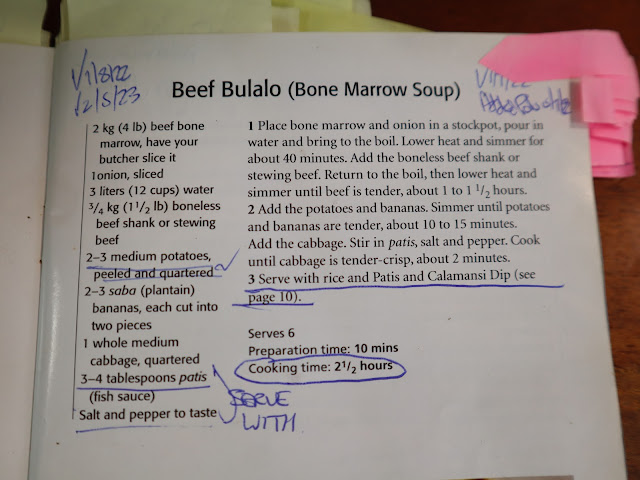 1/8/22
12/5/23
Beef Bulalo (Bone Marrow Soup)
2 kg (4 lb) beef bone
marrow, have your
butcher slice it
1onion, sliced
3 liters (12 cups) water
3/4 kg (1 1/2 lb) boneless
beef shank or stewing
beef
2–3 medium potatoes,
peeled and quartered
2–3 saba (plantain)
bananas, each cut into
two pieces
1 whole medium
cabbage, quartered
3–4 tablespoons patis
(fish sauce)
Salt and pepper to taste
SERVE
WITH
1 Place bone marrow and onion in a stockpot, pour in
water and bring to the boil. Lower heat and simmer for
about 40 minutes. Add the boneless beef shank or
stewing beef. Return to the boil, then lower heat and
simmer until beef is tender, about 1 to 1 1/2 hours.
2 Add the potatoes and bananas. Simmer until potatoes
and bananas are tender, about 10 to 15 minutes.
Add the cabbage. Stir in patis, salt and pepper. Cook
until cabbage is tender-crisp, about 2 minutes.
3 Serve with rice and Patis and Calamansi Dip (see
page 10).
Serves 6
Preparation time: 10 mins
Cooking time: 2 1/2 hours